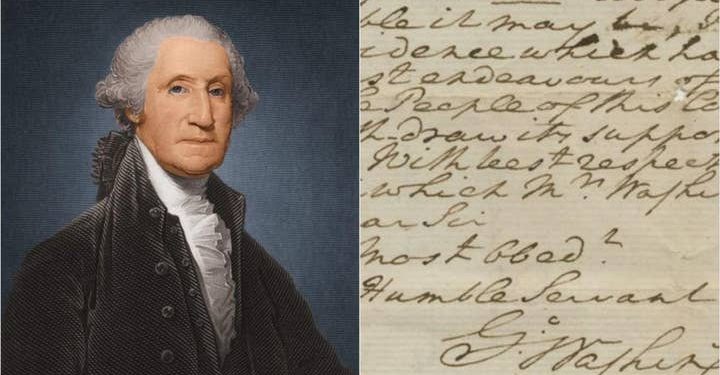 ble it may be, I
idence which ha
st endeavours of
e People of this Co
th-draw its suppo
With best respect
which Mrs Washi
ar Sir
most obedt
Humble Servant
Go: Washin